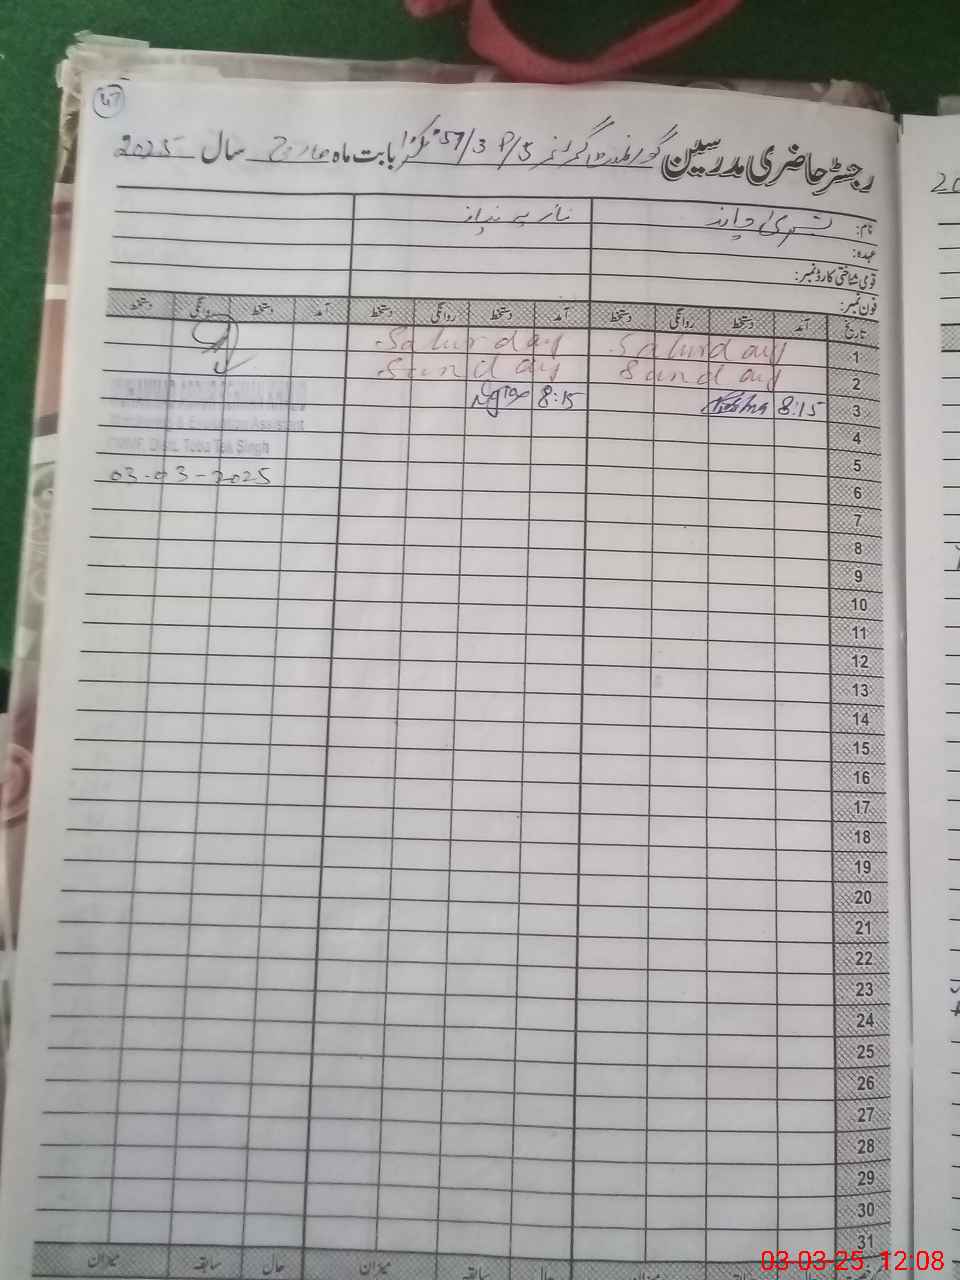 47
رجسٹر حاضری مدرسین گورنمنٹ گرلز 57/3 P/S ٹکڑا بابت ماہ مارچ سال 2025
نام:
عہدہ:
قومی شناختی کارڈ نمبر:
فون نمبر:
تاریخ آمد دستخط روانگی دستخط آمد دستخط روانگی دستخط آمد دستخط روانگی دستخط
1 Saturday Saturday
2 Sunday Sunday
3 8:15 8:15
& Evaluation Assistant
Toba Tek Singh
4
5
03-03-2025
6
7
8
9
10
11
12
13
14
15
16
17
18
19
20
21
22
23
24
25
26
27
28
29
30
31
حال سابقہ میزان حال سابقہ میزان
03-03-25 12:08